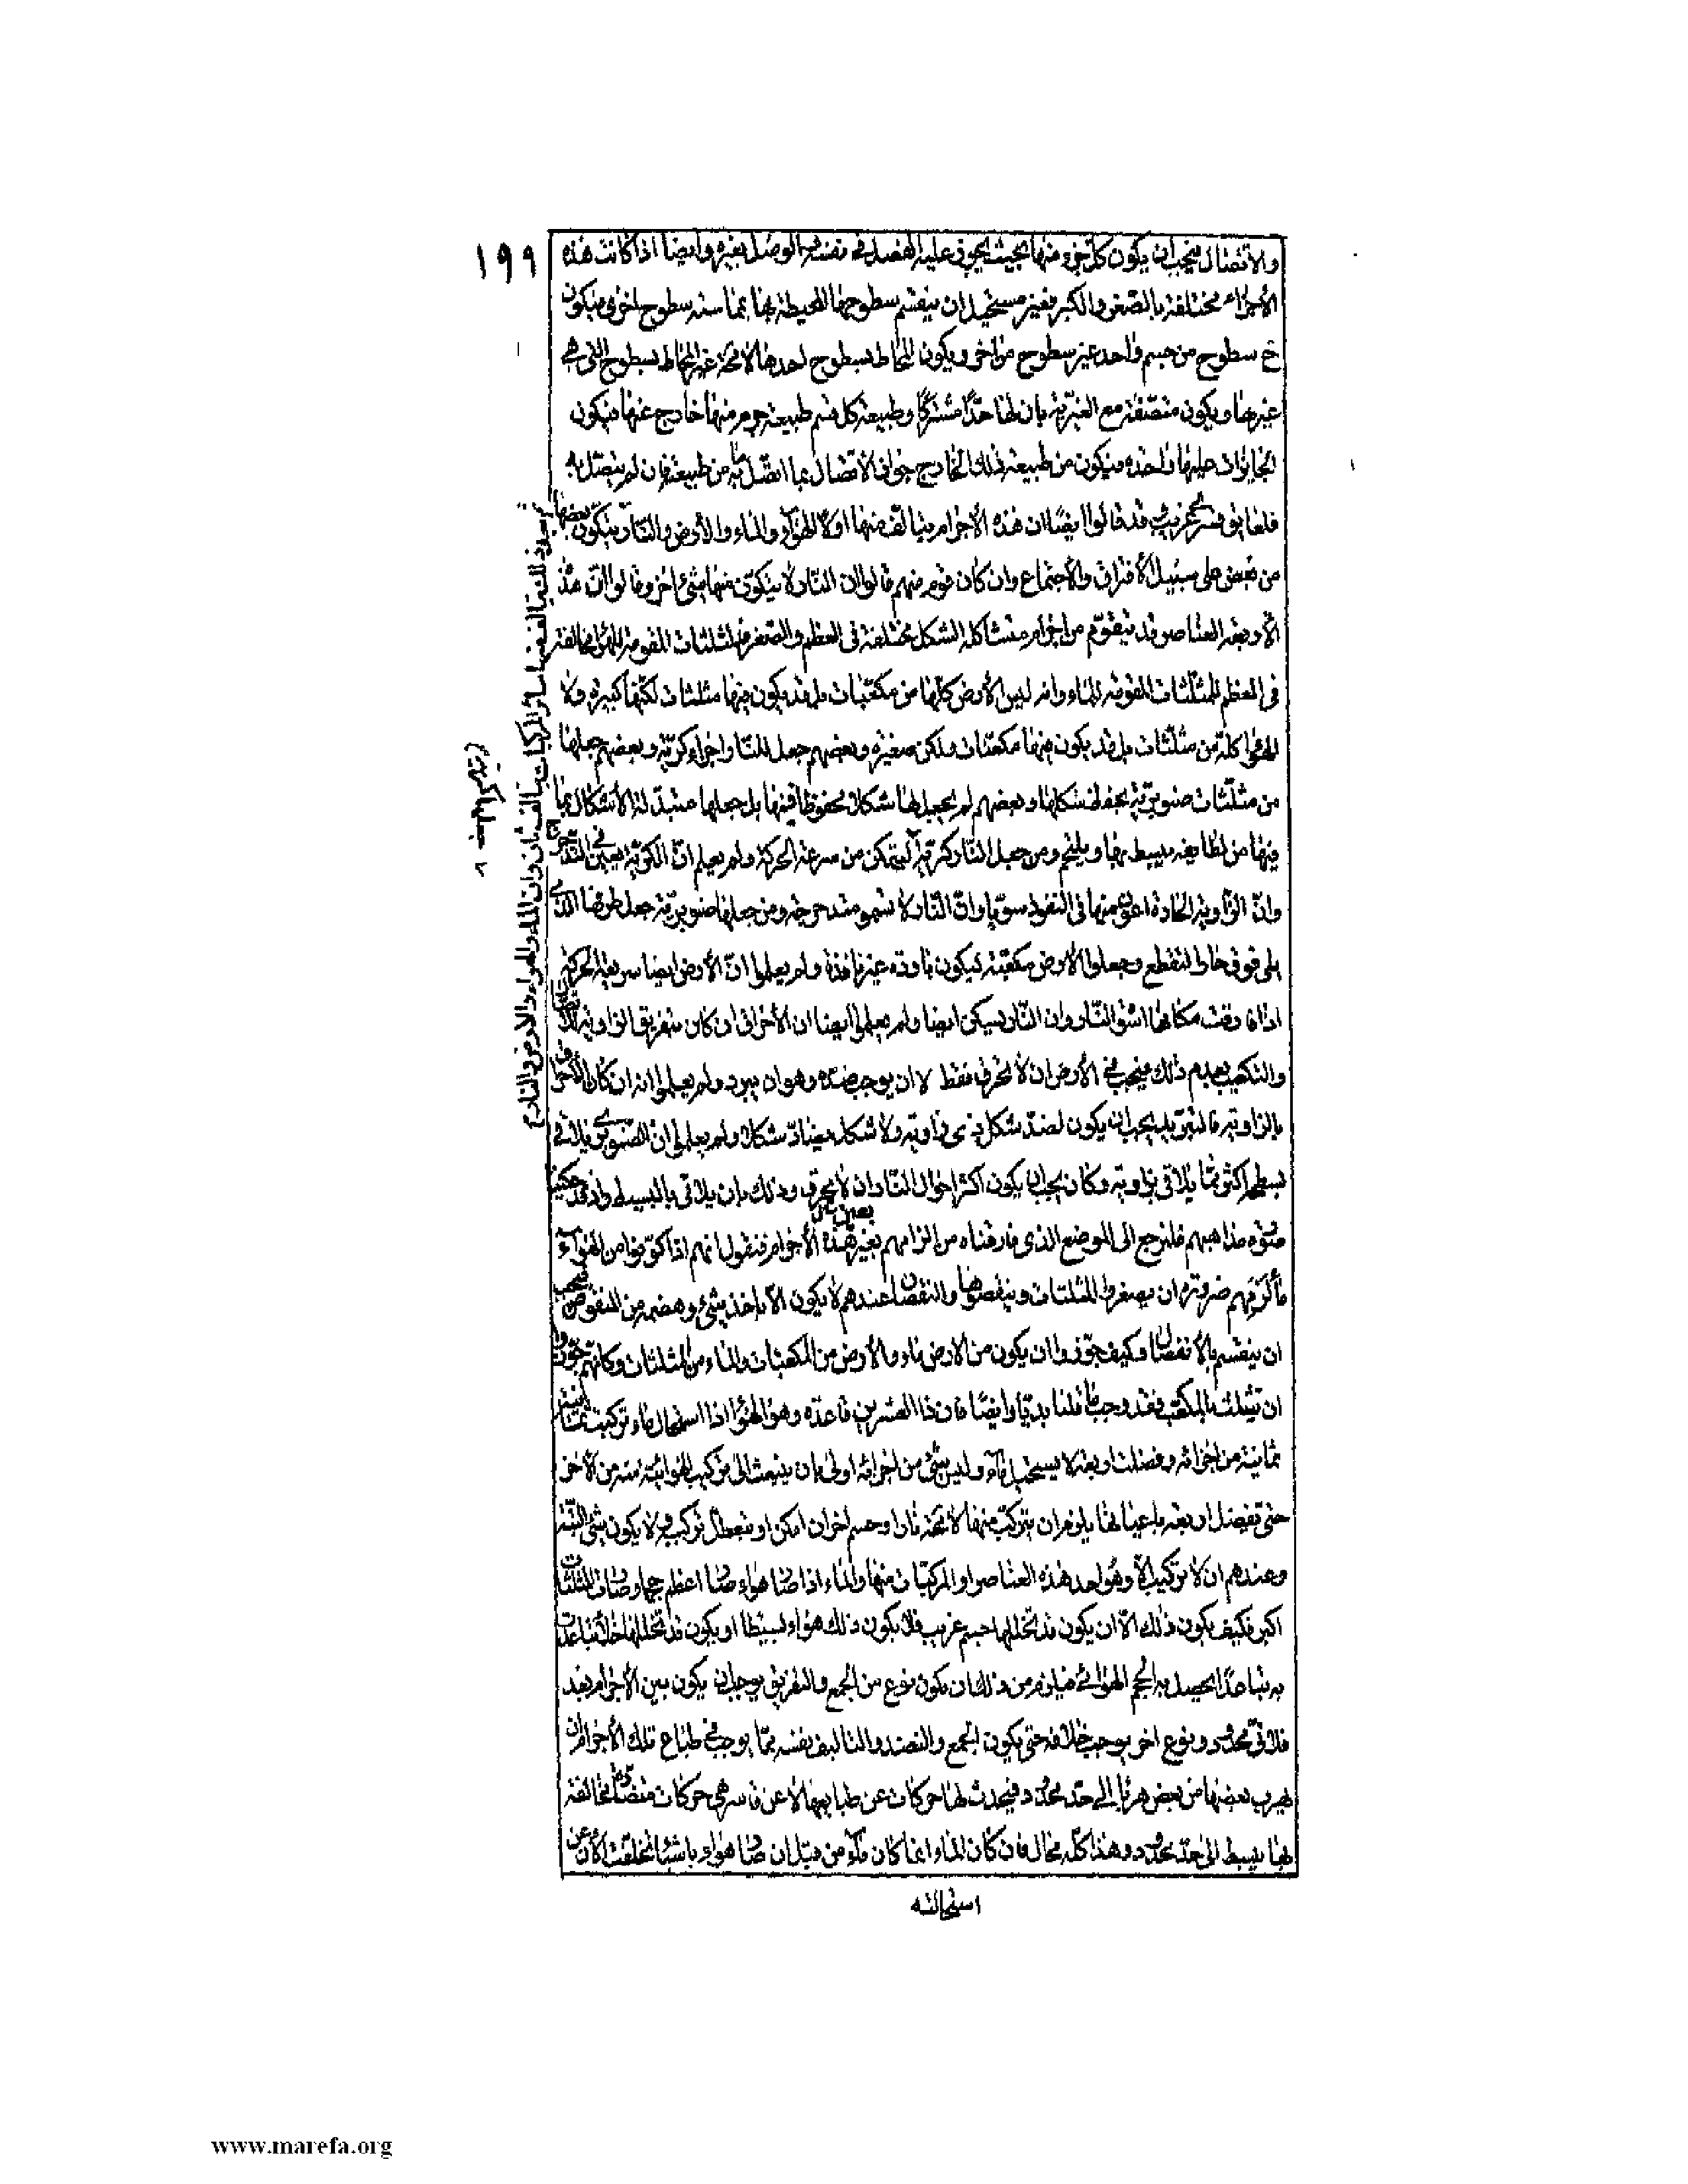 ١٩٩
والاتصال فيجب ان يكون كل جزء منها بحيث يجوز عليه الفصل فى نفسه والوصل بغيره وايضا اذا كانت هذه
الأجزاء مختلفة بالصغر والكبر فغير مستحيل ان ينقسم سطوحها المحيطة بها بمماسة سطوح اخرى فيكون
ح سطوح من جسم واحد غير سطوح من اخر ويكون المحاط بسطوح احدها لا محة غير المحاط بسطوح التى هى
غيرها ويكون متصفة مع الغيرية بان لها حدا مشتركا وطبيعة كل قسم طبيعة جوهر منها خارج عنها فيكون
الجايزات عليهما واحدة فيكون من طبيعة ذلك الخارج جواز الاتصال بما اتصل به من طبيعة فان لم يتصل به
فلعايق قسرى غريب ثم قد قالوا ايضا ان هذه الأجرام يتالف منها اولا الهواء والماء والأرض والنار يتكون بعضها
من بعض على سبيل الأفتراق والأجتماع وان كان قوم منهم قالوا ان النار لا يتكون منها شئ اخر وقالوا ان هذه
الأربعة العناصر قد يتقوم من اجرام متشاكلة الشكل مختلفة فى العظم والصغر فالمثلثات المقومة للهواء مخالفة
فى العظم للمثلثات المقومة للماء وانه ليس الأرض كلها من مكعبات بل قد يكون فيها مثلثات لكنها كبيرة ولا
الهواء كله من مثلثات بل قد يكون فيها مكعبات ولكن صغيرة وبعضهم جعل للنار اجزاء كرية وبعضهم جعلها
من مثلثات صنوبرية يحفظ شكلها وبعضهم لم يجعل لها شكلا محفوظا فيها بل جعلها متبدلة الأشكال بما
فيها من لطافة ينبسط بها ويلتحم ومن جعل النار كرية ليتمكن من سرعة الحركة ولم يعلم ان الكرية يعين فى التدحرج
وان الزاوية الحادة اعون منها فى النفوذ سويا وان النار لا تسمو متدحرجة ومن جعلها صنوبرية جعل طرفها الذى
يلى فوق حادا لتقطع وجعلوا الأرض مكعبة ليكون باردة غير نافذة ولم يعلموا ان الأرض ايضا سريعة الحركة
اذا فارقت مكانها اشق النار وان النار يسكن ايضا ولم يعلموا ايضا ان الأحراق ان كان بتفريق الزاوية للاتصال
والتكعيب يعدم ذلك فيجب فى الأرض ان لا تحرق فقط لا ان يوجب ضده وهو ان يبرد ولم يعلموا انه ان كان الحرق
بالزاوية فالتبريد يجب ان يكون لضد شكل ذى زاوية ولا شكل يضاد شكلا ولم يعلموا ان الصنوبرى يلاقى
بسطحه اكثر مما يلاقى بزاويته وكان يجب ان يكون اكثر احوال النار ان لا تحرق وذلك بان يلاقى بالبسيط واذ قد حكينا
مذاهبهم فلنرجع الى الموضع الذى فارقناه من الزامهم تغير هذه الأجرام فنقول انهم اذا كونوا من الهواء
ماء لزمهم ضرورة ان يصغروا المثلثات وينقصوها والنقصان عندهم لا يكون الا باخذ شئ وهضمه من المنقوص فيجب
ان ينقسم بالأنفصال وكيف جوزوا ان يكون من الارض ماء والأرض من المكعبات والماء من المثلثات وكانهم جوزوا
ان تيثلث المكعب فقد وجب ما قلنا بديا وايضا فان ذا العشرين قاعدة وهو الهواء اذا استحال ماء تركبت مائية
ثمانية من اجزائه وفضلت اربعة لا يستحيل ماء وليس شئ من اجزائه اولى بان ينبعث الى تركيب الهوائية منه من الأخر
حتى تفضل اربعة باعيانها يلزم ان يتركب منها لا محة نار او جسم اخر ان امكن او يتعطل تركيب ولا يكون شئ البتة
وعندهم ان لا تركيب الا وهو احد هذه العناصر او المركبات منها والماء اذا صار هواء صار اعظم حجما وصارت المثلثات
اكبر فكيف يكون ذلك الا ان يكون قد تخللها جسم غريب فلا يكون ذلك هواء بسيطا او يكون قد تخللها خلاء تباعدت
به تباعدا يحصل به الحجم الهوائى فيلزم من ذلك ان يكون نوع من الجمع والتفريق يوجب ان يكون بين الأجرام بعد
محدود ونوع اخر يوجب خلافه حتى يكون الجمع والنضد والتاليف نفسه مما يوجب فى طباع تلك الأجرام ان
يهرب بعضها من بعض هربا الى حد محدود فيحدث لها حركات عن طبايعها لا عن قاسر هى حركات متضادة مخالفة
لها ينبسط الى حد محدود وهذا كله محال فان كان الماء انما كان ماء من قبل ان صار هواء باشياء تخلقت الأن عن
استحالته
سائر المركبات يتالف ثان وان الماء والهواء والارض والنار
www.marefa.org